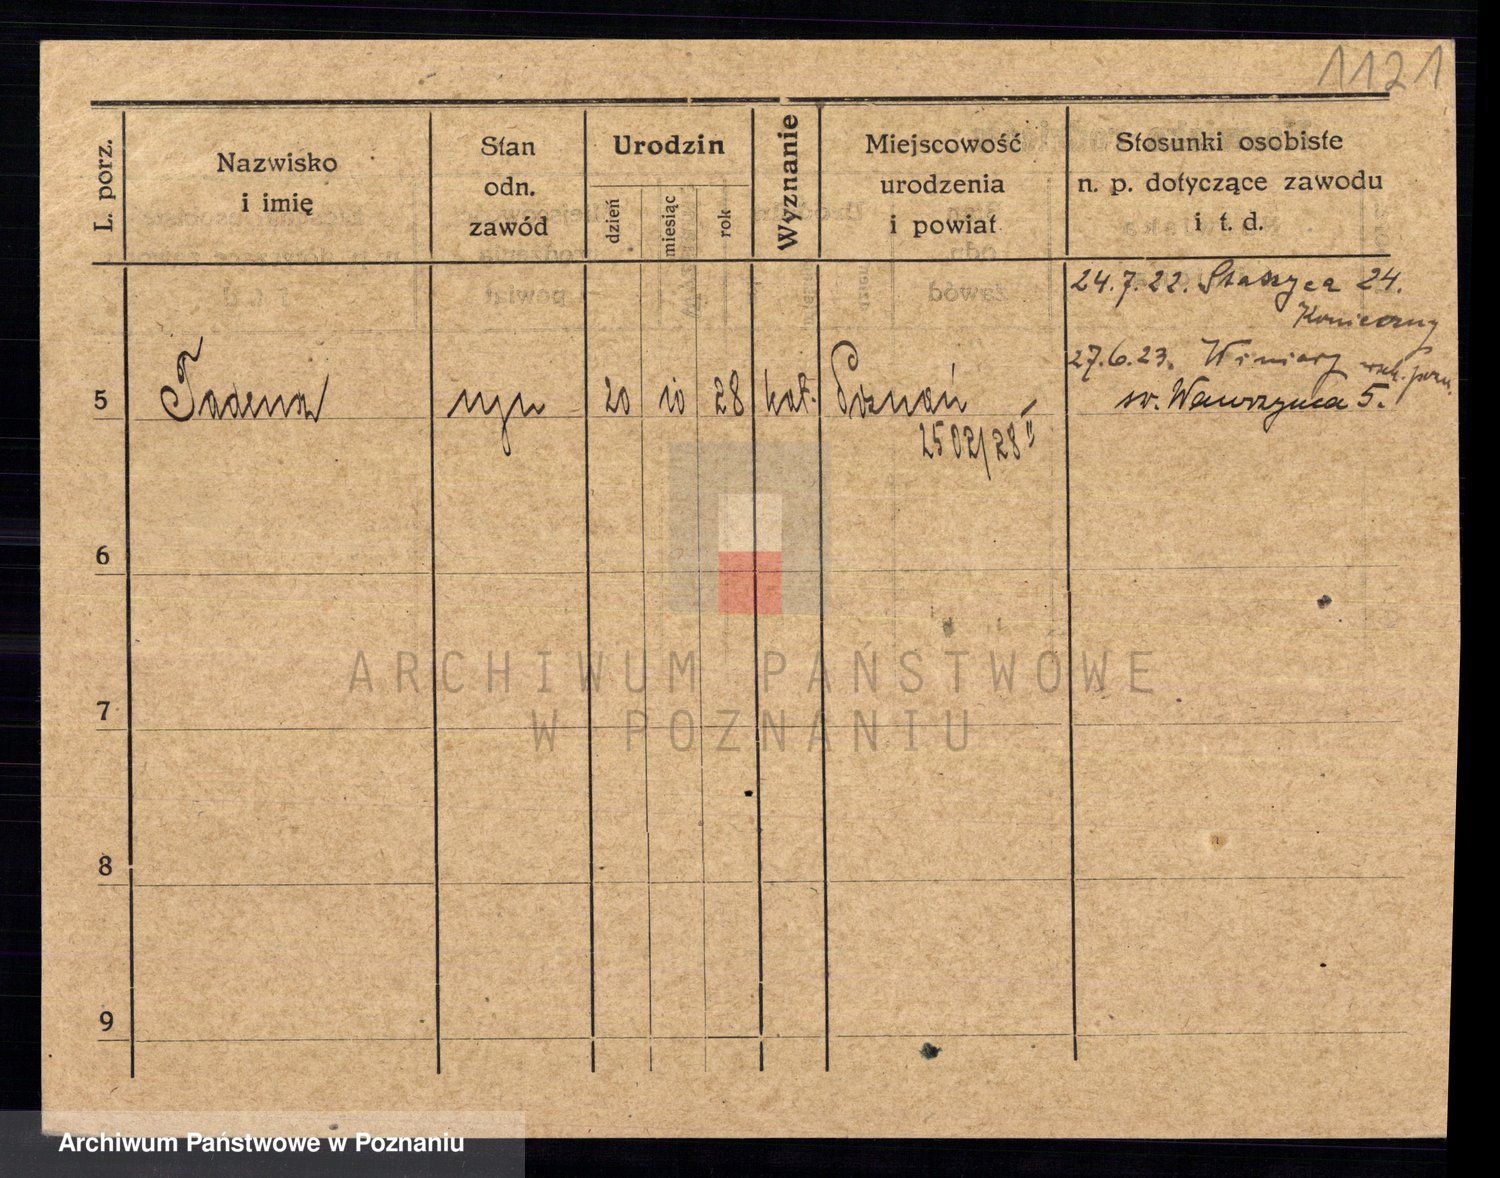 1121
L. porz.
Nazwisko
i imię
Stan
odn.
zawód
Urodzin
dzień
miesiąc
rok
Wyznanie
Miejscowość
urodzenia
i powiat
Stosunki osobiste
n. p. dotyczące zawodu
i t. d.
24.7.22. Staszyca 24.
Konieczny
27.6.23. Winiary
św. Wawrzyńca 5.
5
20 10 28 kat. Poznań
2502/28 II
6
7
8
9
ARCHIWUM PAŃSTWOWE
W POZNANIU
Archiwum Państwowe w Poznaniu